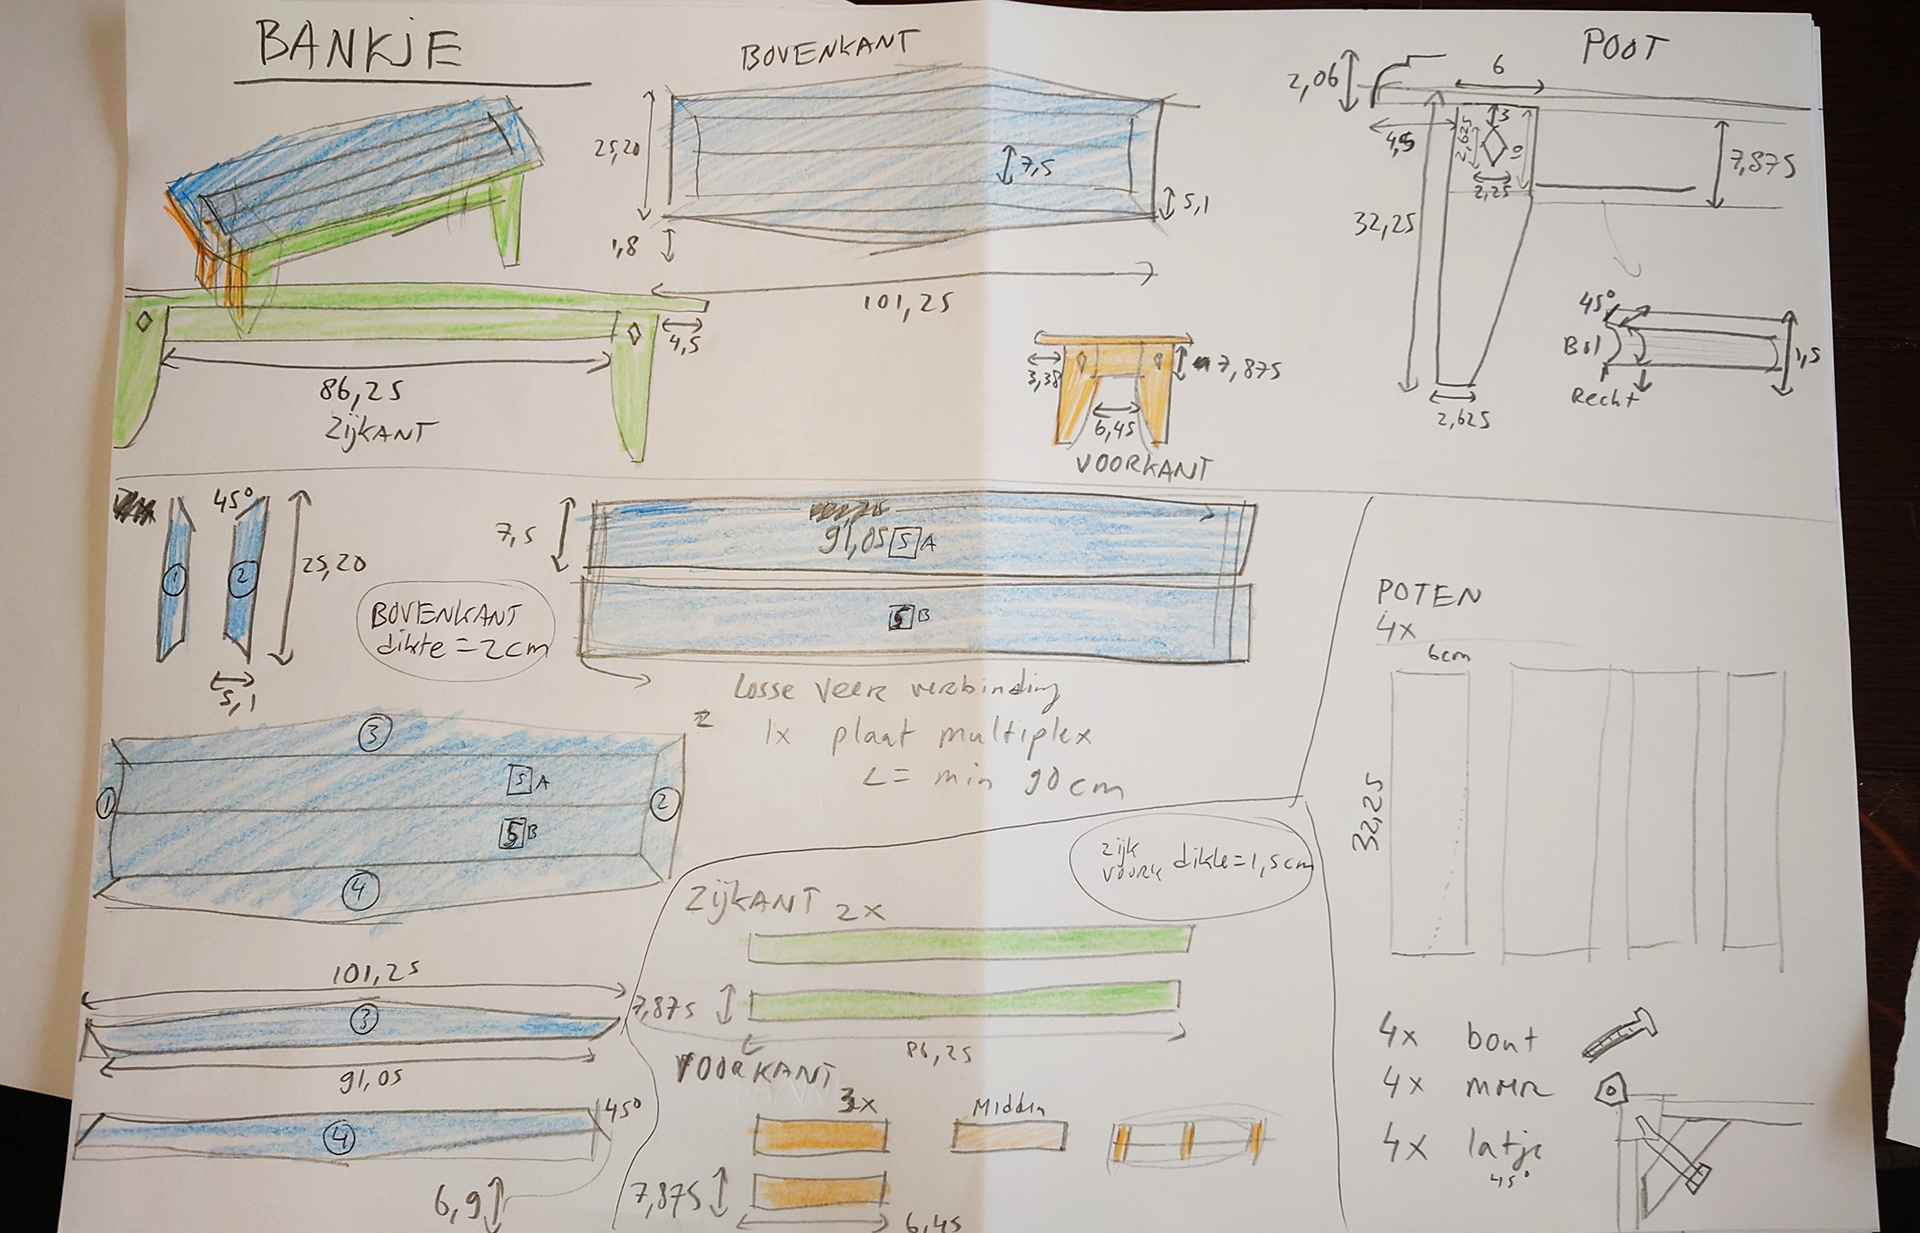 BANKJE
BOVENKANT
25,20
7,5
5,1
1,8
101,25
POOT
2,06
6
4,5
3
2,625
2,25
7,875
32,25
2,625
45°
Bol
Recht
1,5
4,5
86,25
ZijKANT
3,38
7,875
6,45
VOORKANT
45°
1
2
25,20
5,1
BOVENKANT
dikte = 2cm
7,5
91,05 5 A
5 B
Losse veer verbinding
1x plaat multiplex
L = min 90cm
3
5 A
1
2
5 B
4
101,25
3
91,05
4
45°
6,9
zijk
voork dikte = 1,5cm
ZijKANT 2x
7,875
86,25
VOORKANT
3x
Midden
7,875
6,45
POTEN
4x
6cm
32,25
4x bout
4x moer
4x latje
45°